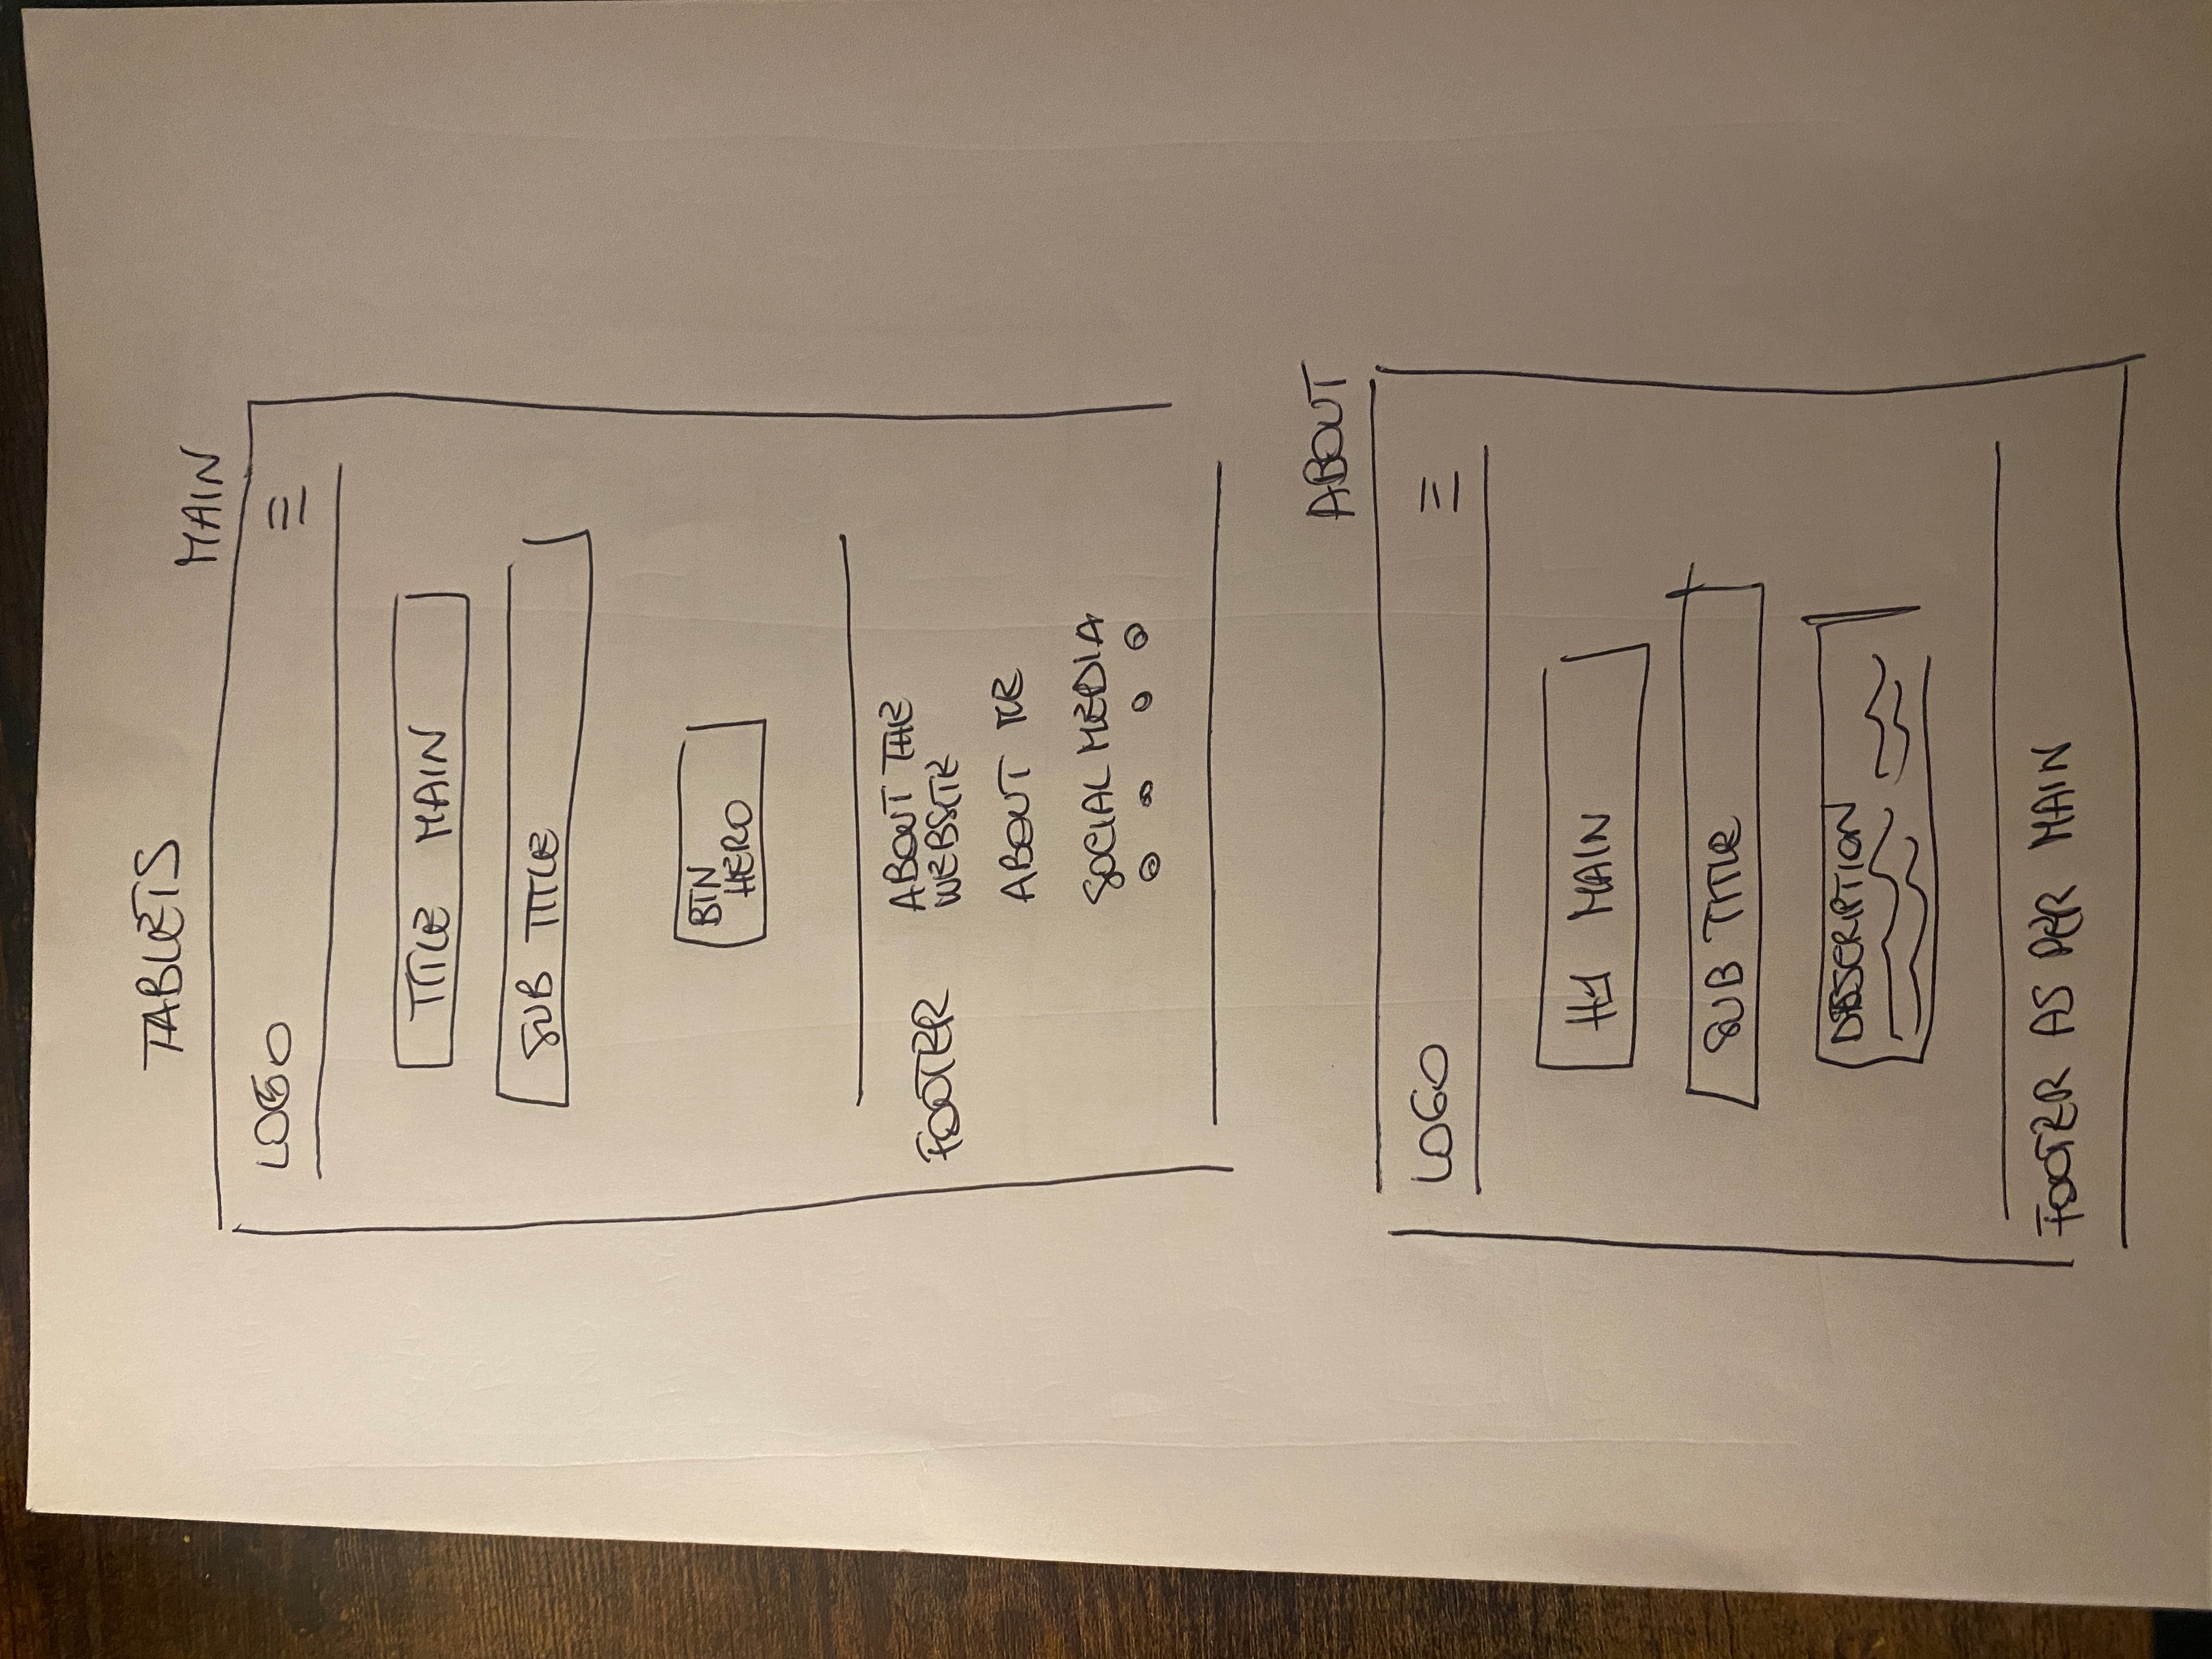 TABLETS
MAIN
LOGO
TITLE MAIN
SUB TITLE
BTN
HERO
FOOTER
ABOUT THE
WEBSITE
ABOUT
SOCIAL MEDIA
ABOUT
LOGO
H1 MAIN
SUB TITLE
DESCRIPTION
FOOTER AS PER MAIN